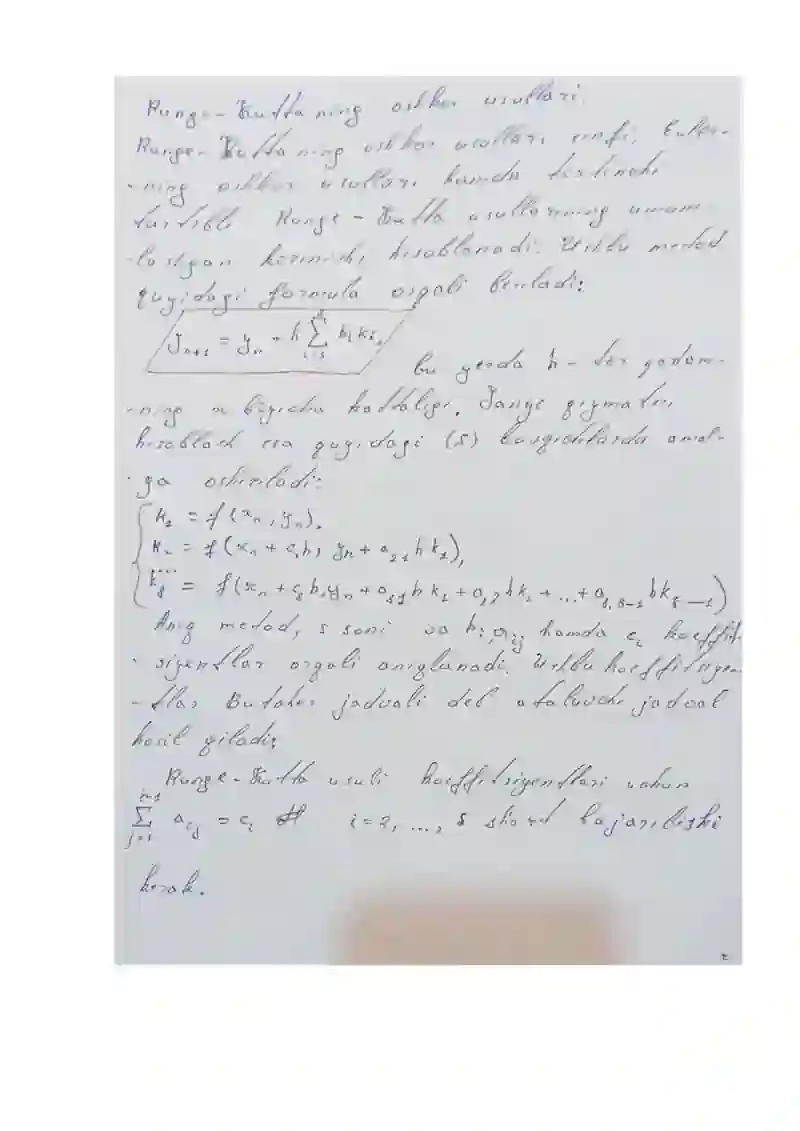 Runge-Kutta ning oshkor usullari.
Runge-Kutta ning oshkor usullari sinfi, Euler-
-ning oshkor usullari hamda tòrtinchi
tartibli Runge-Kutta usullarining umum-
-lashgan kòrinishi hisoblanadi. Ushbu metod
quyidagi formula orqali beriladi:
y_{n+1} = y_n + h \sum_{i=1}^{s} b_i k_i, bu yerda h - tòr qadam-
-ning x bòyicha kattaligi. Yangi qiymatni
hisoblash esa quyidagi (s) bosqichlarda amal-
-ga oshiriladi:
k_1 = f(x_n, y_n),
k_2 = f(x_n + c_2h, y_n + a_{21}hk_1),
...
k_s = f(x_n + c_sh, y_n + a_{s1}hk_1 + a_{s2}hk_2 + ... + a_{s,s-1}hk_{s-1})
Aniq metod, s soni va b_i, a_{ij} hamda c_i koeffit-
-siyentlar orqali aniqlanadi. Ushbu koeffitsiyen-
-tlar Butcher jadvali deb ataluvchi jadval
hosil qiladi:
Runge-Kutta usuli koeffitsiyentlari uchun
\sum_{j=1}^{i-1} a_{ij} = c_i i=2, ..., s shart bajarilishi
kerak.